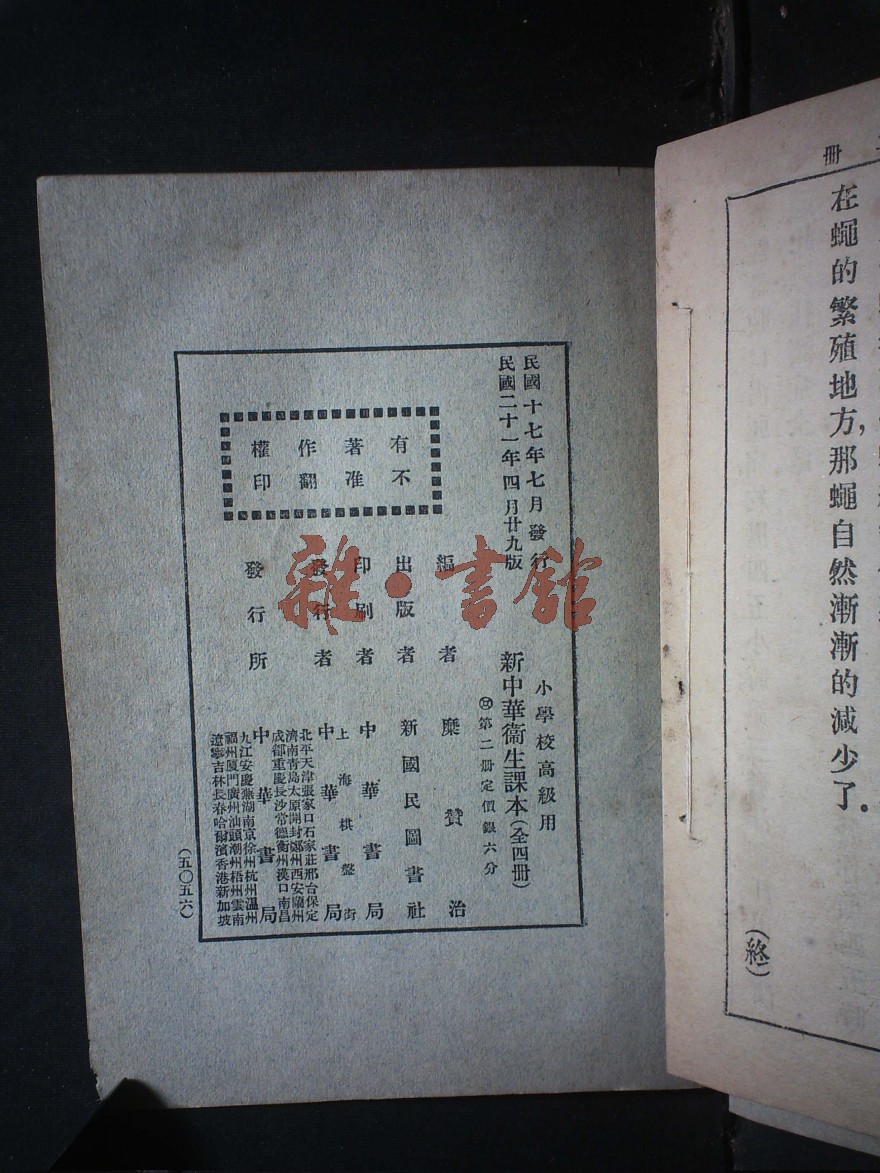 冊
在蠅的繁殖地方，那蠅自然漸漸的減少了。
(終)
民國十七年七月發行
民國二十一年四月廿九版
小學校高級用
新中華衞生課本(全四冊)
第二冊定價銀六分
編者 糜贊治
出版者 新國民圖書社
印刷者 中華書局
上海棋盤街
發行者 中華書局
發行所 中華書局
北平天津張家口石家莊邢台保定
濟南青島太原開封鄭州西安蘭州
成都重慶長沙常德衡州漢口南昌
九江安慶蕪湖南京徐州杭州溫州
福州廈門廣州汕頭潮州梧州雲南
遼寧吉林長春哈爾濱香港新加坡
有著作權
不准翻印
(五〇五六)
雜·書館